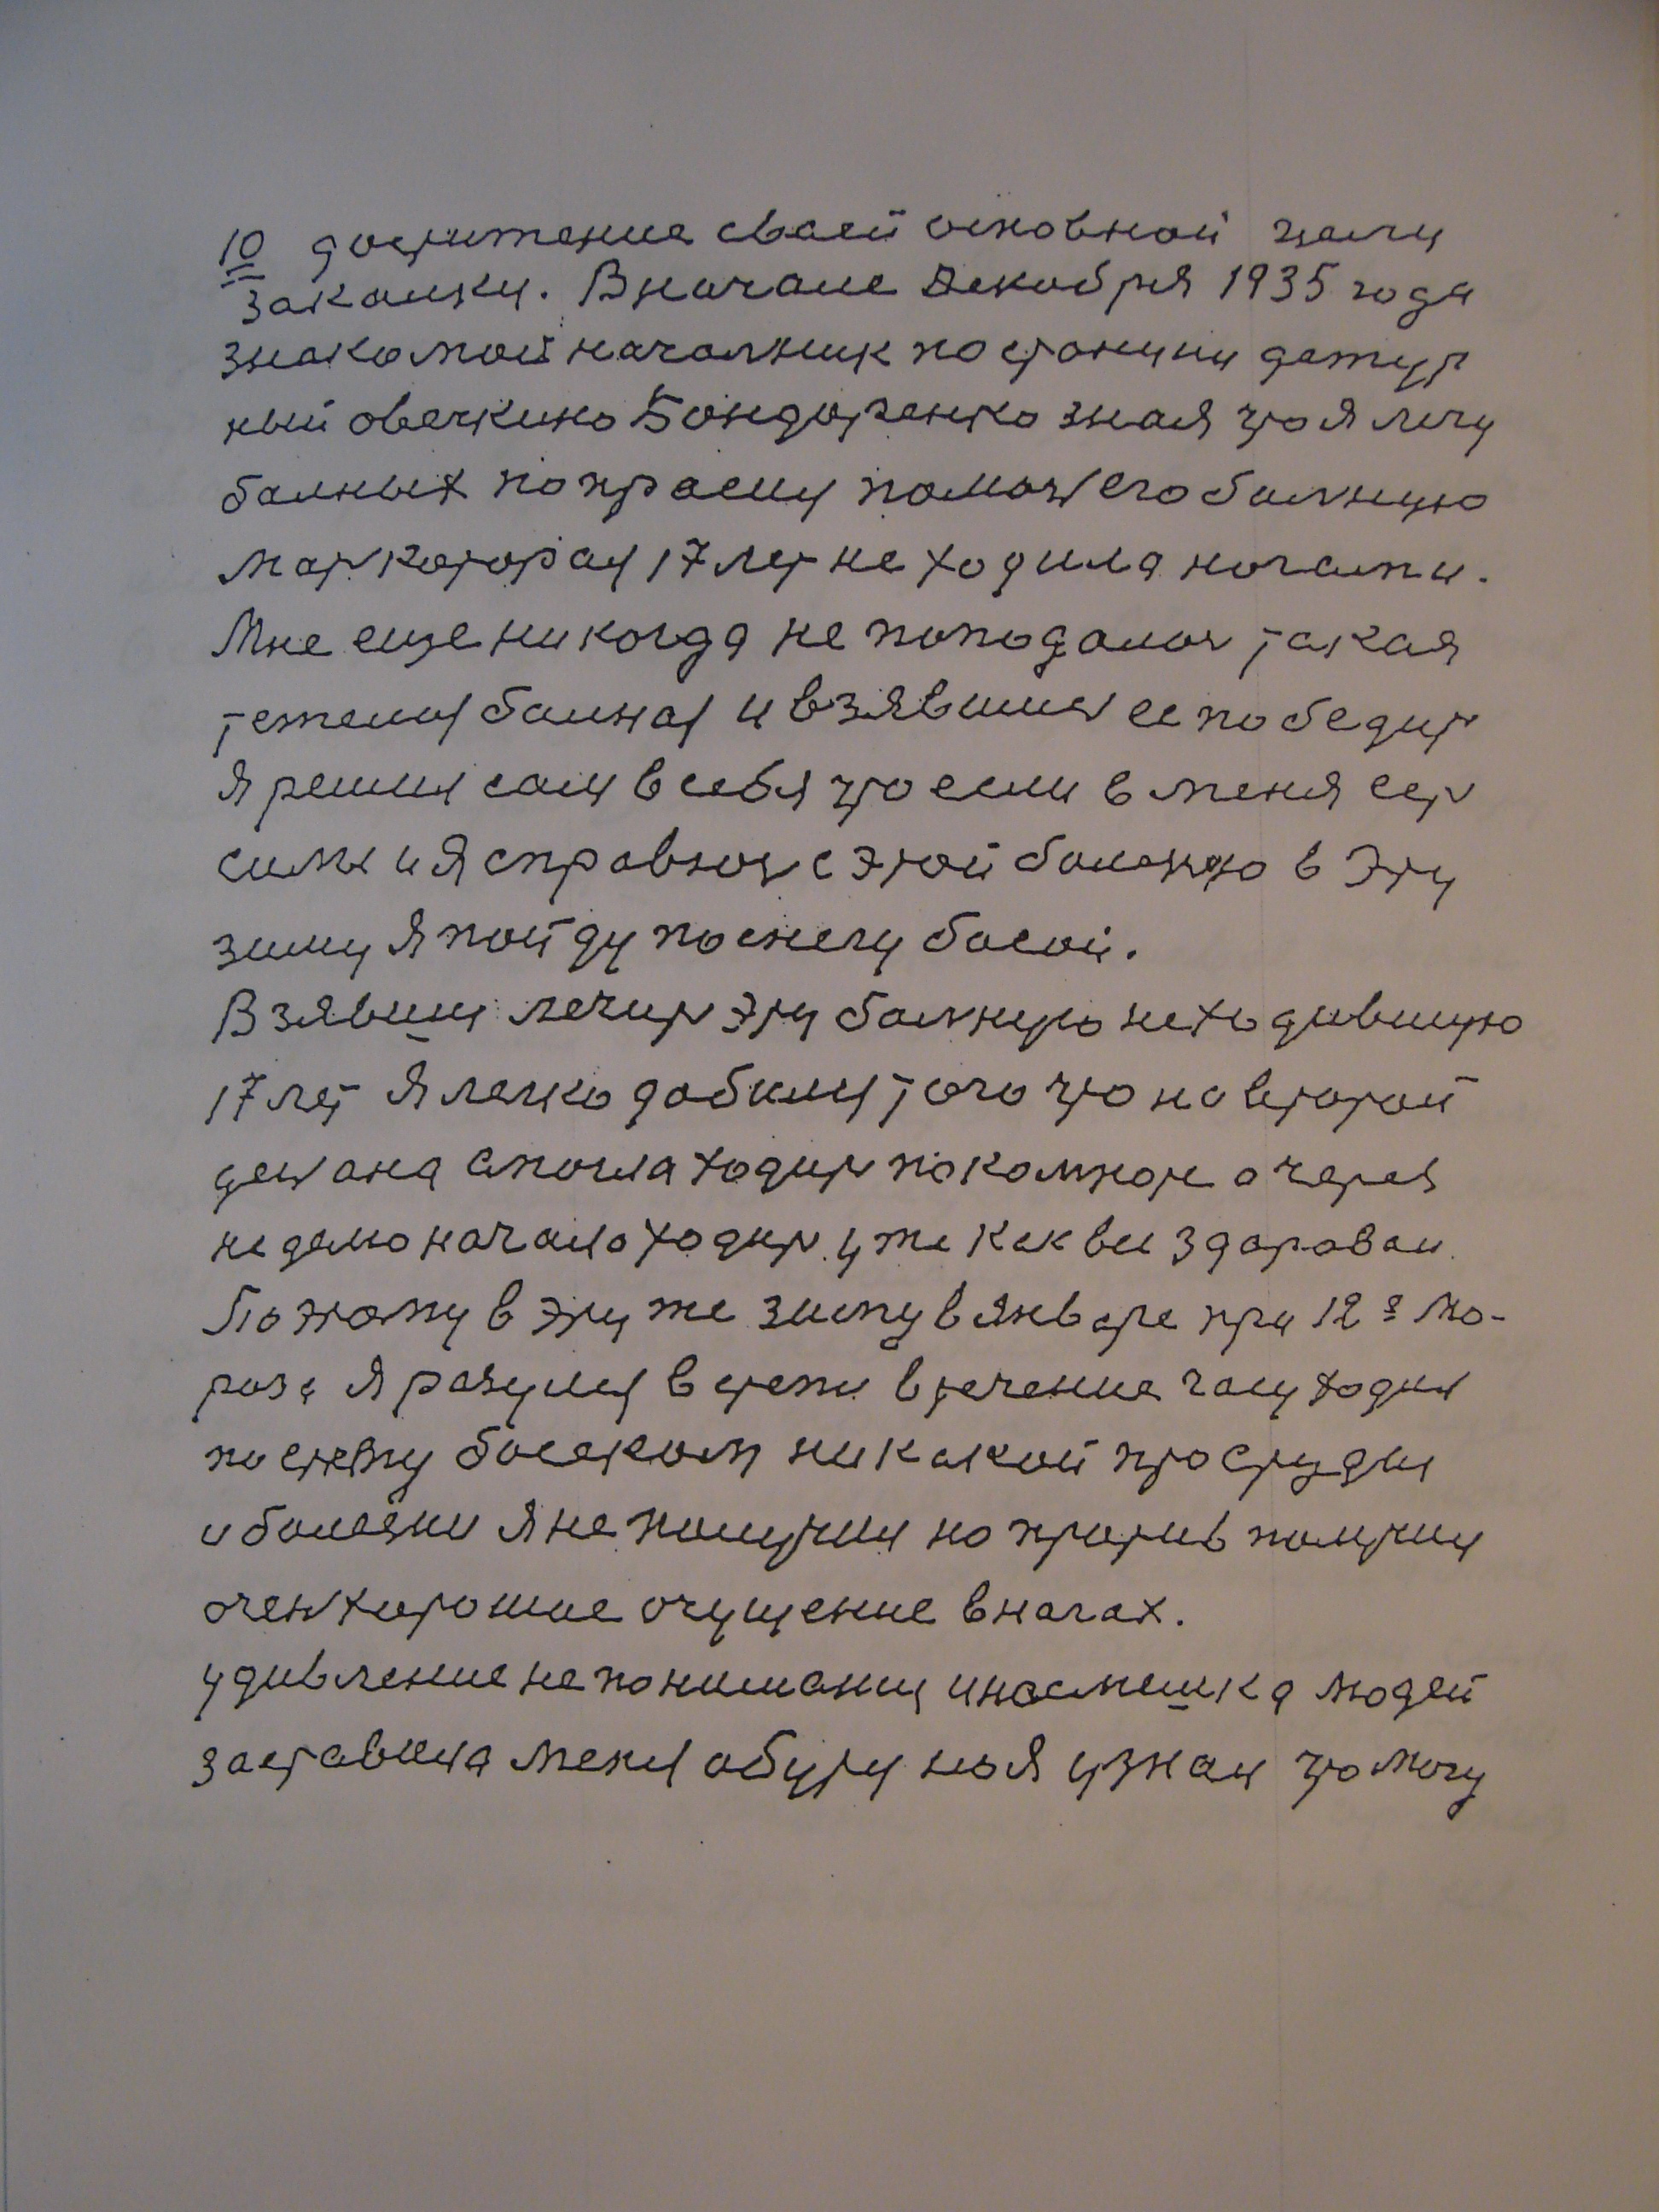 10 достижение сваей основной цели
закалки. Вначале Декабря 1935 года
знакомой началник по станции дежур
ный овечкино Бондаренко зная что я лечу
балных попрасил помоч его болную
мат которая 17 лет не ходила ногами.
Мне еще никогда не поподалос такая
тежелая балная и взявшис ее победит
Я решил сам в себя что если в меня ест
силы и Я справлюс с этой болезню в Эту
зиму Я пойду по снегу босой.
Взявшис лечит Эту болную не ходившую
17 лет Я легко добился того что на второй
ден она смогла ходит по комнате а через
неделю начала ходит уже как все здороваи
Поэтому в эту же зиму в Январе при 12 г мо-
роза Я разулся в степи в течение часу ходил
по снегу босяком никакой простуды
и болезни Я не получил на против получил
очен хорошие очущение в ногах.
удивление не понимания и насмешка людей
заставила меня обутся но Я узнал что могу